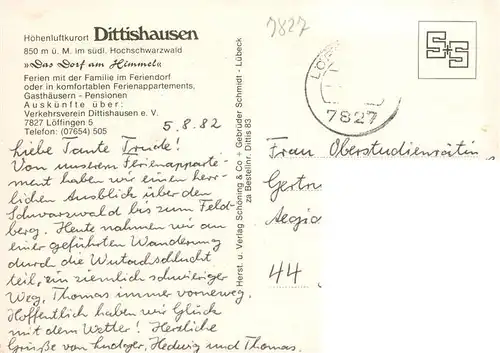 Höhenluftkurort Dittishausen
850 m ü. M. im südl. Hochschwarzwald
»Das Dorf am Himmel«
Ferien mit der Familie im Feriendorf
oder in komfortablen Ferienappartements,
Gasthäusern - Pensionen
Auskünfte über:
Verkehrsverein Dittishausen e. V.
7827 Löffingen 5
Telefon: (07654) 505
5.8.82
Liebe Tante Trude!
Von unserem Ferienapparte-
ment haben wir einen herr-
lichen Ausblick über den
Schwarzwald bis zum Feld-
berg. Heute nahmen wir an
einer geführten Wanderung
durch die Wutachschlucht
teil, ein ziemlich schwieriger
Weg, Thomas immer vorneweg.
Hoffentlich haben wir Glück
mit dem Wetter! Herzliche
Grüße von Ludger, Hedwig und Thomas.
Herst. u. Verlag Schöning & Co. - Gebrüder Schmidt - Lübeck
za Bestellnr. Dittis 83
7827
LÖ
7827
S+S
Frau Oberstudienrätin
Gertru
Aegid
44